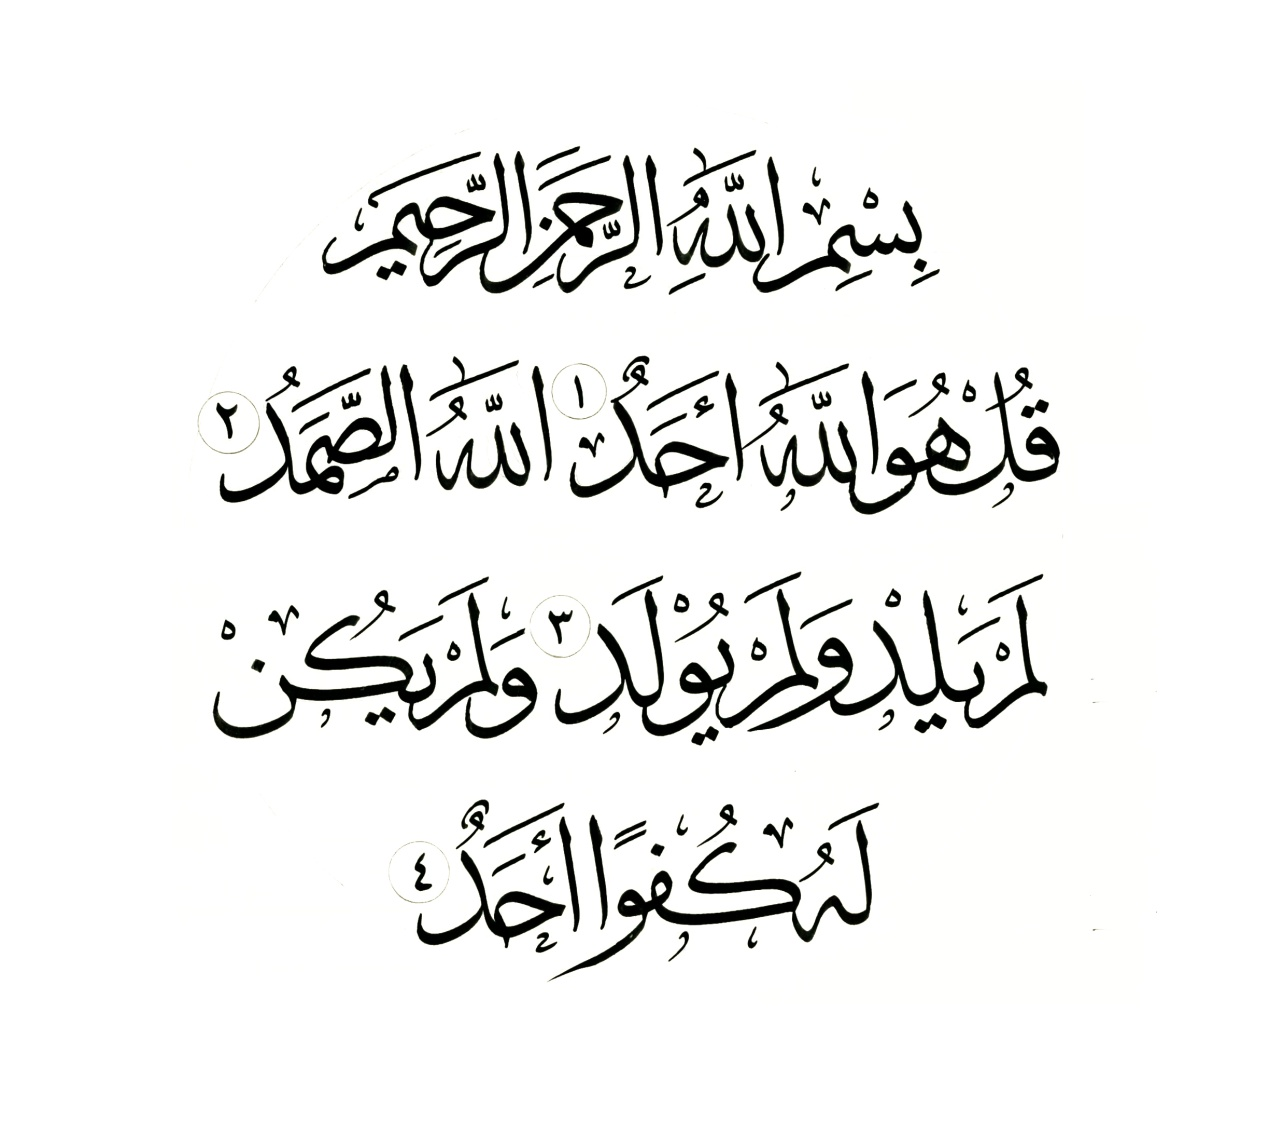 بِسْمِ اللَّهِ الرَّحْمَٰنِ الرَّحِيمِ
قُلْ هُوَ اللَّهُ أَحَدٌ ١ اللَّهُ الصَّمَدُ ٢
لَمْ يَلِدْ وَلَمْ يُوْلَدْ ٣ وَلَمْ يَكُنْ
لَهُ كُفُوًا أَحَدٌ ٤